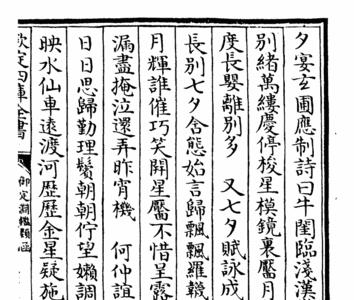 夕宴𤣥圃應制詩曰牛閨臨淺漢
別緒萬縷慶停梭星模鏡裏靨月
度長嬰離別多 又七夕賦詠成
長別七夕含態始言歸飄飄羅韈
月輝誰催巧笑開星靨不惜呈露
漏盡掩泣還弄昨宵機 何仲諠
日日思歸勤理鬢朝朝佇望嬾調
映水仙車遠渡河歷歷金星疑施
欽定四庫全書 御定淵鑑類函